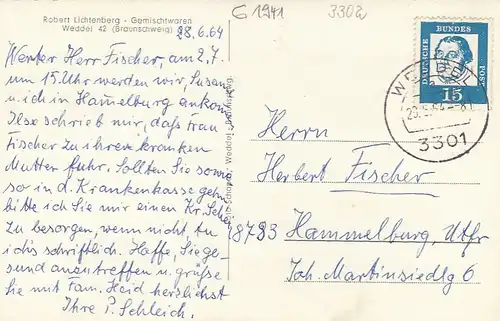 G 1941
3302
Robert Lichtenberg - Gemischtwaren
Weddel 42 (Braunschweig)
28.6.64
Werter Herr Fischer, am 2.7.
um 15 Uhr werden wir, Susan
u. ich in Hammelburg ankom.
Ilse schrieb mir, daß Frau
Fischer zu ihrer kranken
Mutter fuhr. Sollten Sie sowie
so in d. Krankenkasse gehn
bitte ich Sie mir einen Kr. Schein
zu besorgen, wenn nicht, tu
ich's schriftlich. Hoffe, Sie ge-
sund anzutreffen u. grüße
Sie mit Fam. Heid herzlichst
Ihre P. Schleich.
DEUTSCHE BUNDESPOST
15
WEDDEL
3301
Herrn
Herbert Fischer
8783 Hammelburg, Ufr
Joh. Martinsiedlg 6